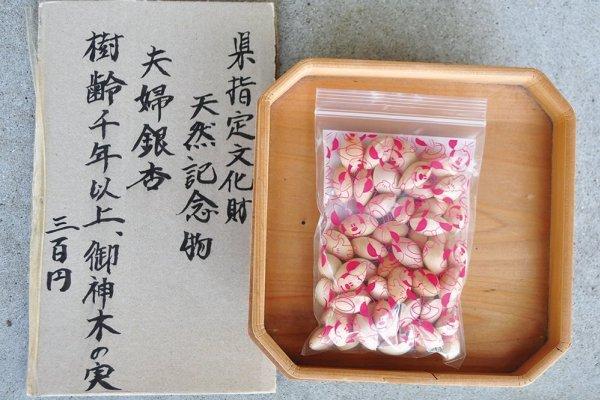 県指定文化財
天然記念物
夫婦銀杏
樹齢千年以上、御神木の実
三百円